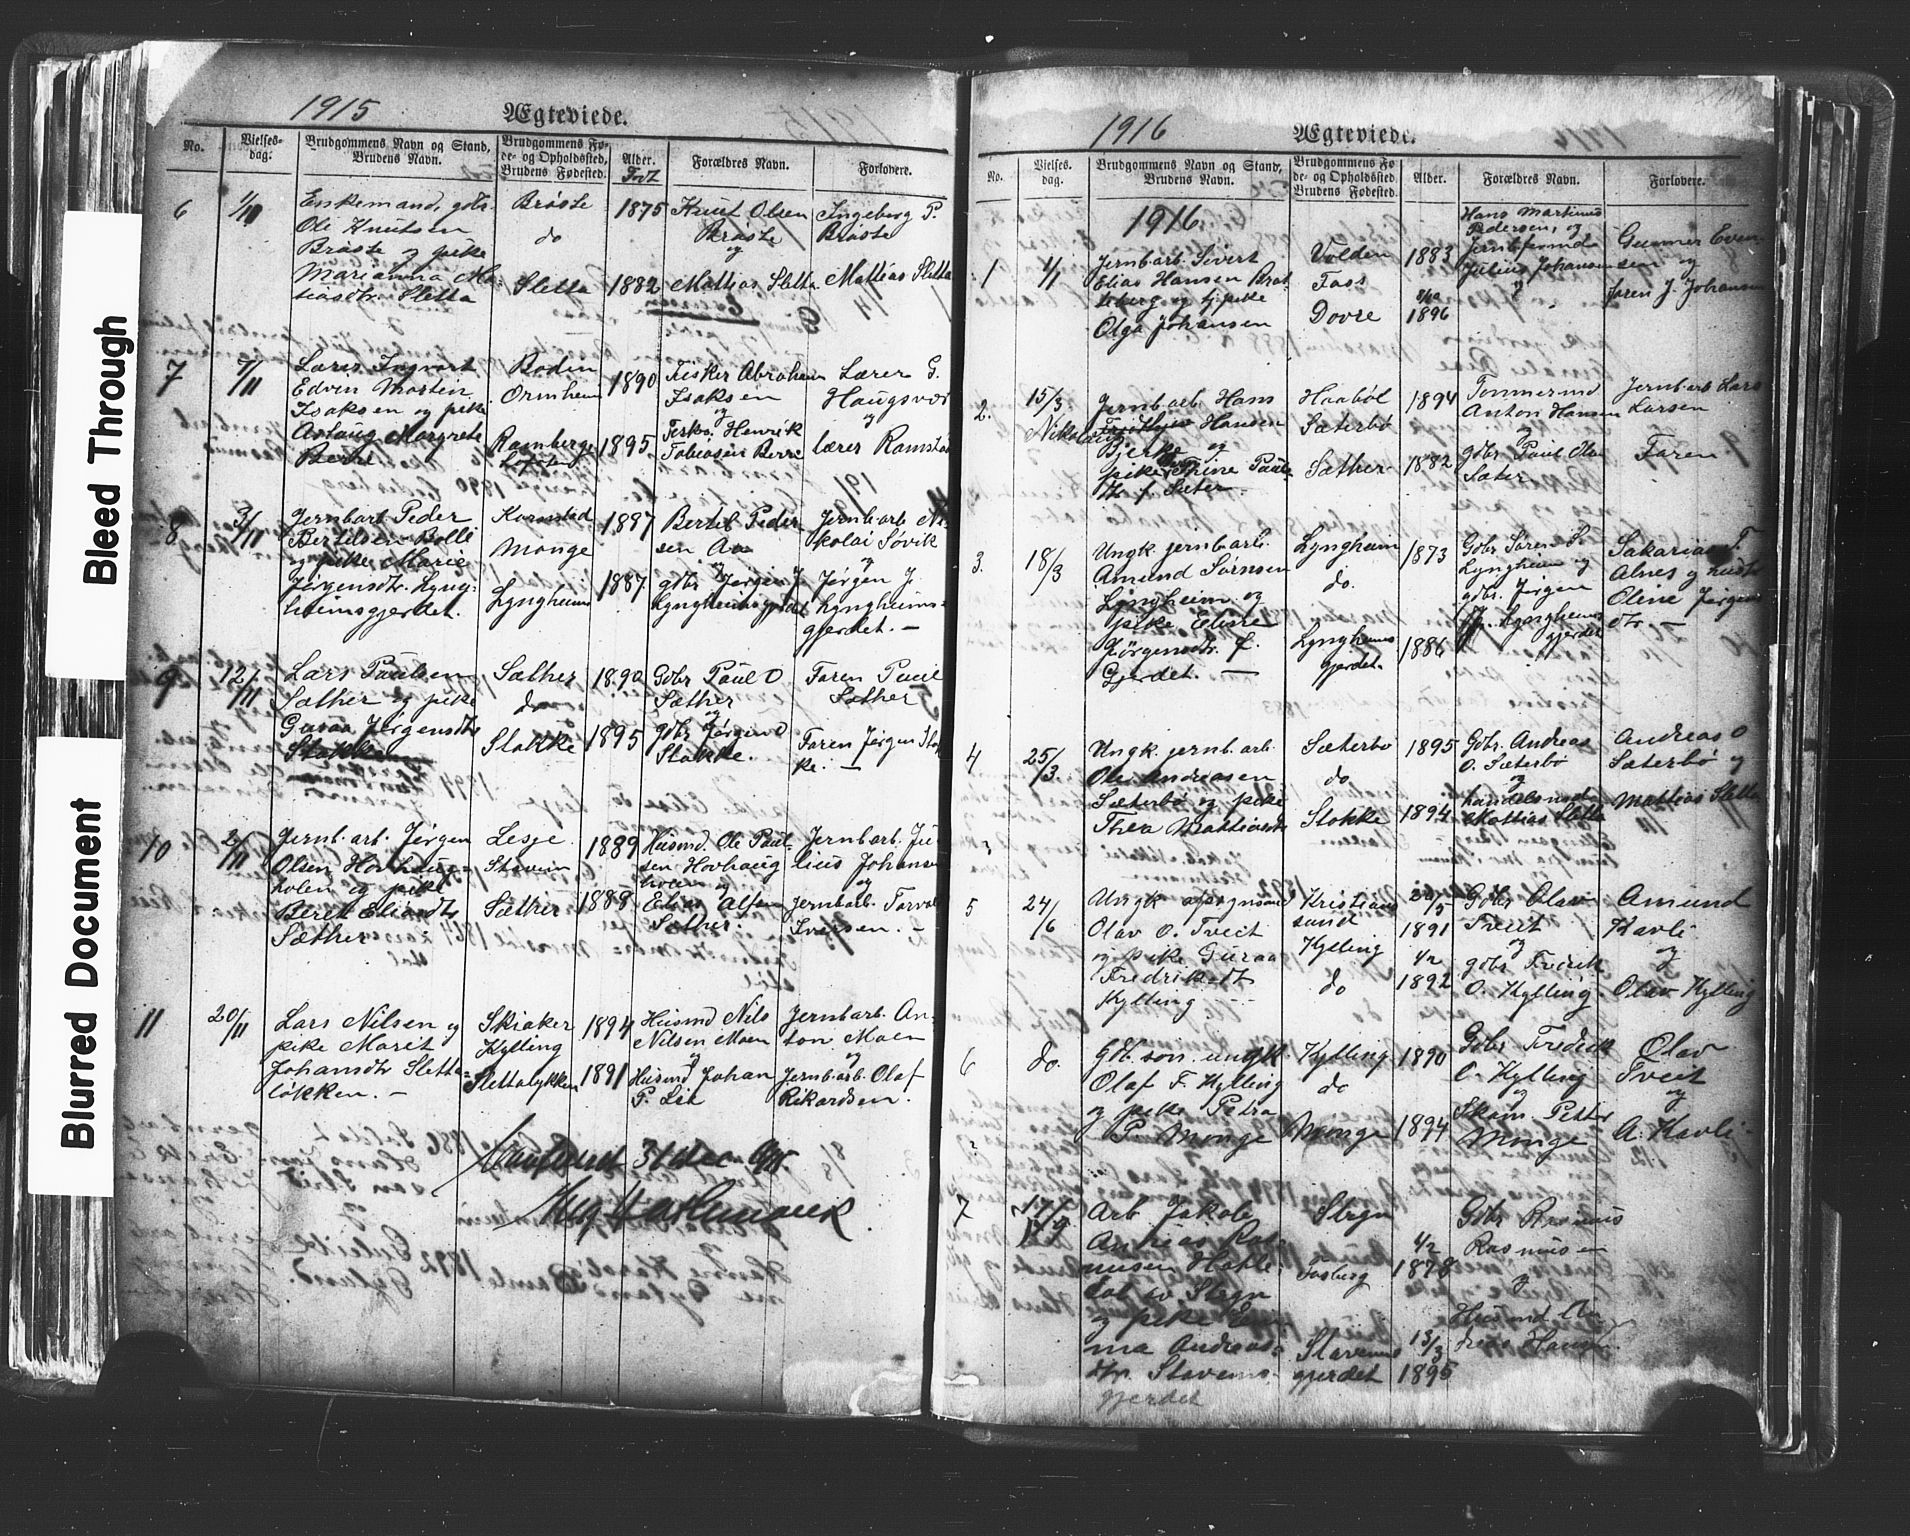 Bleed Through
Blurred Document
1915 Ægteviede.
No.
Vielses-
dag.
Brudgommens Navn og Stand,
Brudens Navn.
Brudgommens Fø-
de- og Opholdssted,
Brudens Fødested.
Alder.
Født
Forældres Navn.
Forlovere.
6
1/11
Enkemand, gdbr.
Ole Knutsen
Brøste og pike
Marianna Ma-
tiasdtr. Sletta
Brøste
do
Sletta
1875
1882
Knut Olsen
Brøste
og
Mattias Sletta
Ingeborg P.
Brøste
Mattias Sletta
7
7/11
Lærer Ingvart
Edvin Martin
Isaksen og pike
Aslaug Margrete
Berre
Bodin
Ormheim
Ramberge
Lofoten
1890
1895
Fisker Abraham
Isaksen
og
Henrik
Tobiasen Berre
Lærer G.
Haugsvær
og
lærer Ramstad
8
Jernbarb Peder
Bertelsen Bolli
og pike Marie
Jørgensdtr Lyng-
heimsgjerdet.
Korsstad
Monge
Lyngheim
1897
1887
Bertel Peder-
sen Aa
og
gdbr Jørgen J.
Lyngheimsgjerdet
Jernbarb Ni-
kolai Søvik
og
Jørgen J.
Lyngheims-
gjerdet. —
9
12/11
Lars Paulsen
Sæther og pike
Guraa Jørgensdtr
Stokke
Sæther
do
Stokke
1890
1895
Gdbr Paul O
Sæther
og
Gdbr Jørgen O
Stokke.
Faren Paul
Sæther
Faren Jørgen Stok
ke. —
10
2/11
Jernb.arb. Jørgen
Olsen Hovhaug-
holen og pike
Beret Eliasdtr
Sæther
Lesje.
Staveim
Sæther
1889
1888
Husmd. Ole Paul-
sen Hovhaug
holen og
Elias Olsen
Sæther.
Jernb.arb. Ju-
lius Johansen
og
jernbarb. Torvald
Iversen. -
11
20/11
Lars Nilsen og
pike Marit
Johansdtr Sletta-
løkken. -
Skiaker
Kylling
Slettaløkken
1894
1891
Husmd Nils
Nilsen Moen
og
Husmd Johan
P. Lia
Jernbarb. An-
ton Moen
og
Jernb.arb. Olaf
Rikardsen.
Konferert 31 dec 1915.
1916 Ægteviede.
No.
Vielses-
dag.
Brudgommens Navn og Stand,
Brudens Navn.
Brudgommens Fø
de- og Opholdssted,
Brudens Fødested.
Alder.
Forældres Navn.
Forlovere.
1916
1
4/1
Jernbarb Sivert
Elias Hansen Brat
teberg og pike
Olga Johansen
Volden
Foss
Dovre
1883
1896
Hans Martinus
Pedersen, og
Jernbformd
Julius Johansen
Gunnar Even-
sen og
faren J. Johansen
2.
15/3
Nikolai
Jernbarb Hans
Hansen
Bjerke og
pike Thine Pauls
dtr f. Sæter -
Haabøl
Sæterbø
Sæther
1894
1882
Tømmermd
Anton Hansen
og
gdbr Paul Olsen
Sæter
Jernbarb Lars
Larsen
Faren
3.
18/3
Ungk. jernb.arb.
Amund Sørnsen
Lyngheim og
pike Eline
Jørgensdtr. f.
Gjerdet. —
Lyngheim
do.
Lyngheims
gjerdet.
1873
1886
Gdbr Søren S.
Lyngheim og
gdbr. Jørgen
J. Lyngheims
gjerdet
Sakarias T.
Alnes og
Oline Jørgens
dtr. —
4
25/3.
Ungk. jernb.arb.
Ole Andreasen
Sæterbø og pike
Thea Mattiasdtr
Sæterbø
do
Stokke
1895
1894
Gdbr. Andreas
O. Sæterbø
og
handelsmd
Mattias Sletta
Andreas O
Sæterbø og
Mattias Sletta
5
24/6
Ungk
Olav O. Tveit
og pike Guraa
Fredriksdt
Kylling
Kristians
sund
Kylling
do
1891
4/2
1892
Gdbr Olav
Tveit
og
gdbr Fredrik
O. Kylling.
Amund
Kavli
og
Olav Kylling
6
do.
Gdb.søn ungk
Olaf F. Kylling
og pike Petra
P. Monge
Kylling
do
Monge
1890
1894
Gdbr Fredrik
O. Kylling
og
Skom. Petter
Monge
Olav
Tveit
og
A. Kavli -
7
Arb Jakob
Andreas Ras-
musen Hatle-
og pike
ma Andreas-
dtr. Stavems-
gjerdet
Torberg
Stavems
gjerdet
4/2
1878
13/3
1895
Gdbr Rasmus
Rasmusen
og
Husmd An-
dreas Hansen